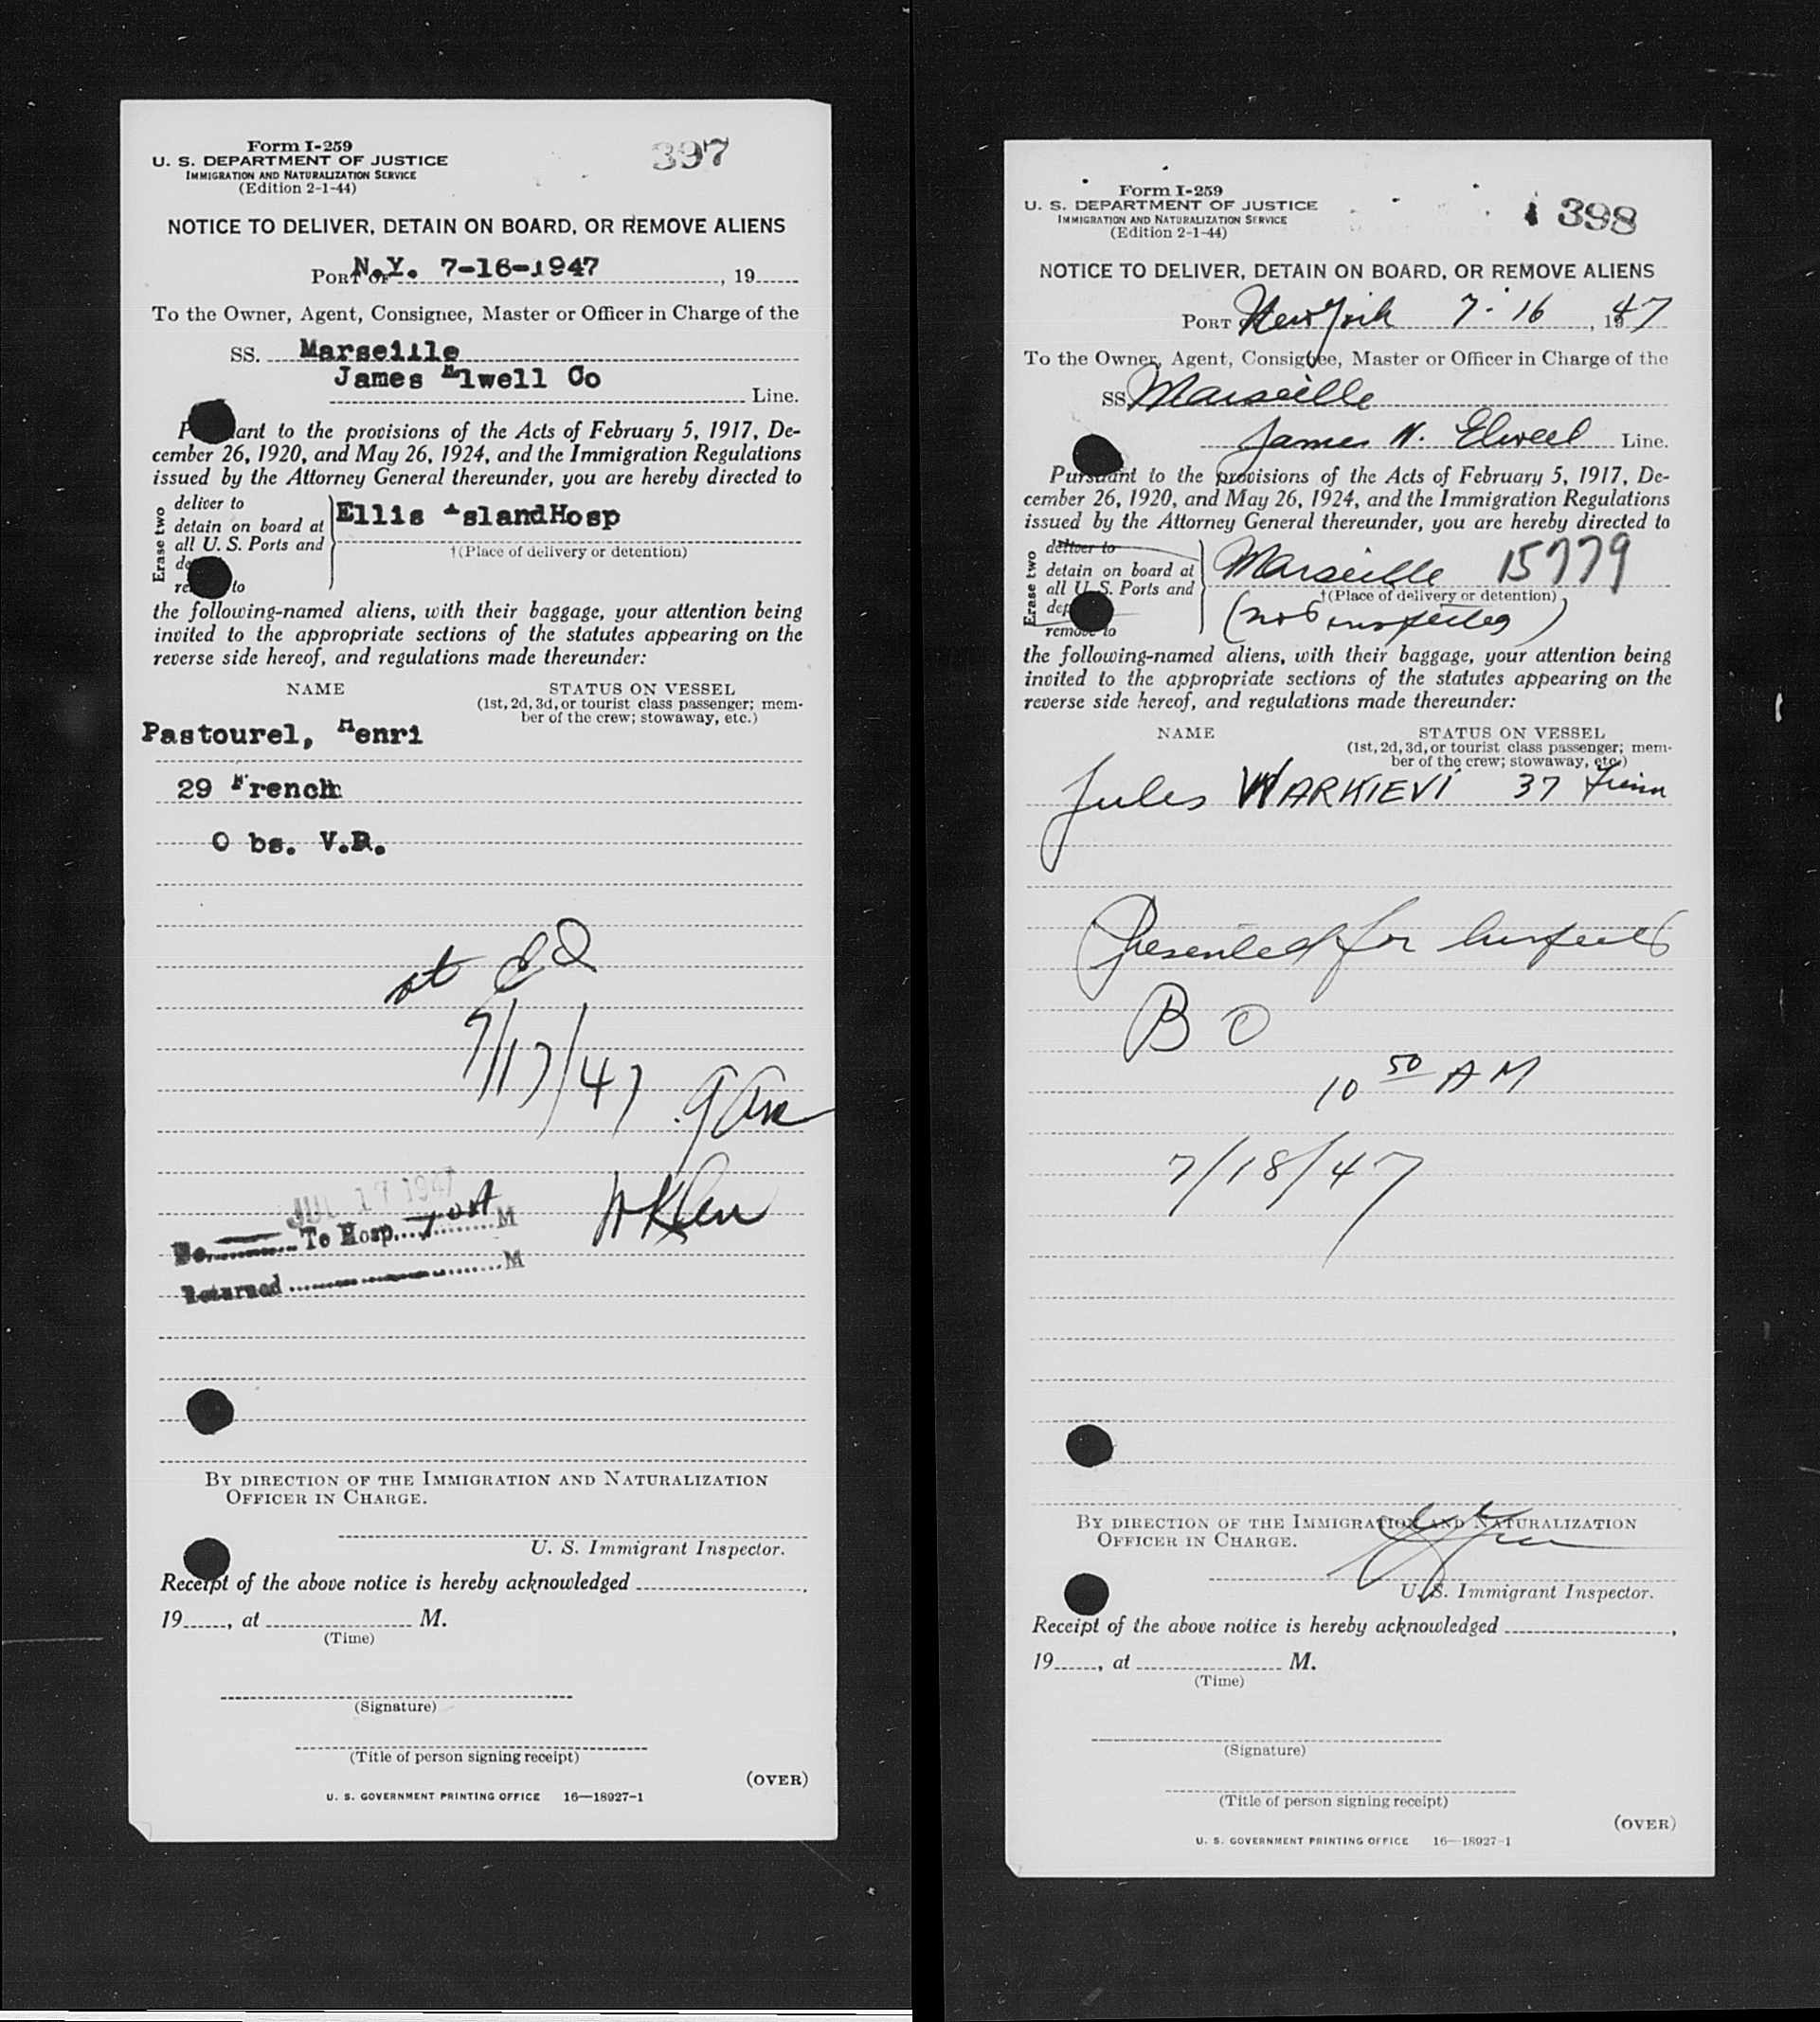 Form I-259
U. S. DEPARTMENT OF JUSTICE
IMMIGRATION AND NATURALIZATION SERVICE
(Edition 2-1-44)
397
NOTICE TO DELIVER, DETAIN ON BOARD, OR REMOVE ALIENS
PORT OF N.Y. 7-16-1947, 19
To the Owner, Agent, Consignee, Master or Officer in Charge of the
SS. Marseille
James Elwell Co
Line.
ant to the provisions of the Acts of February 5, 1917, De-
cember 26, 1920, and May 26, 1924, and the Immigration Regulations
issued by the Attorney General thereunder, you are hereby directed to
Erase two
deliver to
detain on board at
all U. S. Ports and
de
re to
Ellis IslandHosp
†(Place of delivery or detention)
the following-named aliens, with their baggage, your attention being
invited to the appropriate sections of the statutes appearing on the
reverse side hereof, and regulations made thereunder:
NAME
STATUS ON VESSEL
(1st, 2d, 3d, or tourist class passenger; mem-
ber of the crew; stowaway, etc.)
Pastourel, Henri
29 French
O bs. V.D.
at
7/17/47
JUL 17 1947
No. To Hosp. M
Returned M
BY DIRECTION OF THE IMMIGRATION AND NATURALIZATION
OFFICER IN CHARGE.
U. S. Immigrant Inspector.
Receipt of the above notice is hereby acknowledged
19, at M.
(Time)
(Signature)
(Title of person signing receipt)
(OVER)
U. S. GOVERNMENT PRINTING OFFICE 16—18927-1
Form I-259
U. S. DEPARTMENT OF JUSTICE
IMMIGRATION AND NATURALIZATION SERVICE
(Edition 2-1-44)
398
NOTICE TO DELIVER, DETAIN ON BOARD, OR REMOVE ALIENS
PORT New York 7-16, 1947
To the Owner, Agent, Consignee, Master or Officer in Charge of the
SS. Marseille
James W. Elwell Line.
Pursuant to the provisions of the Acts of February 5, 1917, De-
cember 26, 1920, and May 26, 1924, and the Immigration Regulations
issued by the Attorney General thereunder, you are hereby directed to
Erase two
deliver to
detain on board at
all U. S. Ports and
dep
remove to
Marseille 15779
†(Place of delivery or detention)
(not inspected)
the following-named aliens, with their baggage, your attention being
invited to the appropriate sections of the statutes appearing on the
reverse side hereof, and regulations made thereunder:
NAME
STATUS ON VESSEL
(1st, 2d, 3d, or tourist class passenger; mem-
ber of the crew; stowaway, etc.)
Jules WARKIEVI 37
Presented for
B O
10 50 AM
7/18/47
BY DIRECTION OF THE IMMIGRATION AND NATURALIZATION
OFFICER IN CHARGE.
U. S. Immigrant Inspector.
Receipt of the above notice is hereby acknowledged,
19, at M.
(Time)
(Signature)
(Title of person signing receipt)
(OVER)
U. S. GOVERNMENT PRINTING OFFICE 16—18927-1